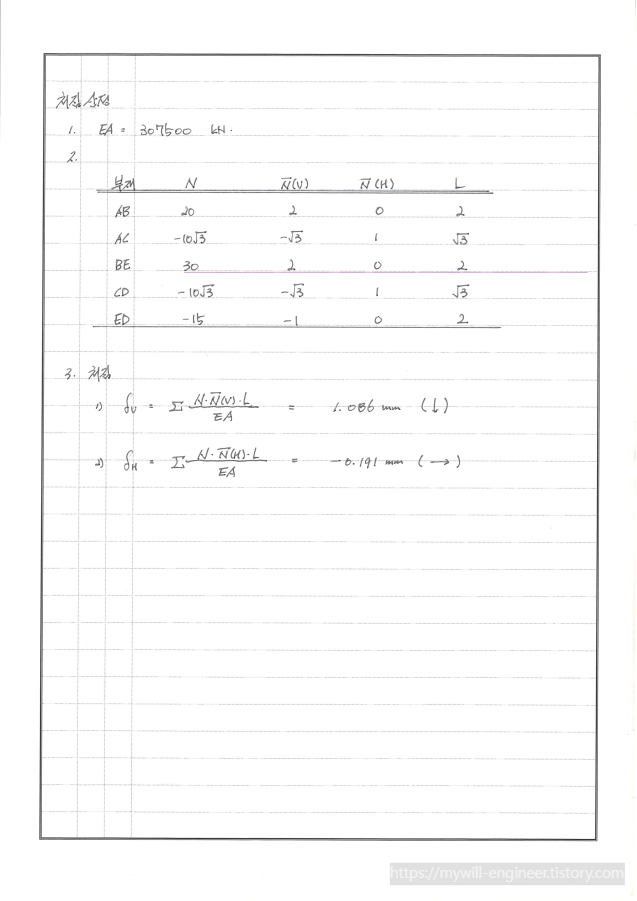 처짐 산정
1. EA = 307500 kN.
2.
부재 N N̅(V) N̅(H) L
AB 20 2 0 2
AC -10√3 -√3 1 √3
BE 30 2 0 2
CD -10√3 -√3 1 √3
ED -15 -1 0 2
3. 처짐
1) δv = Σ N·N̅(V)·L / EA = 1.086 mm (↓)
2) δH = Σ N·N̅(H)·L / EA = -0.191 mm (→)
https://mywill-engineer.tistory.com